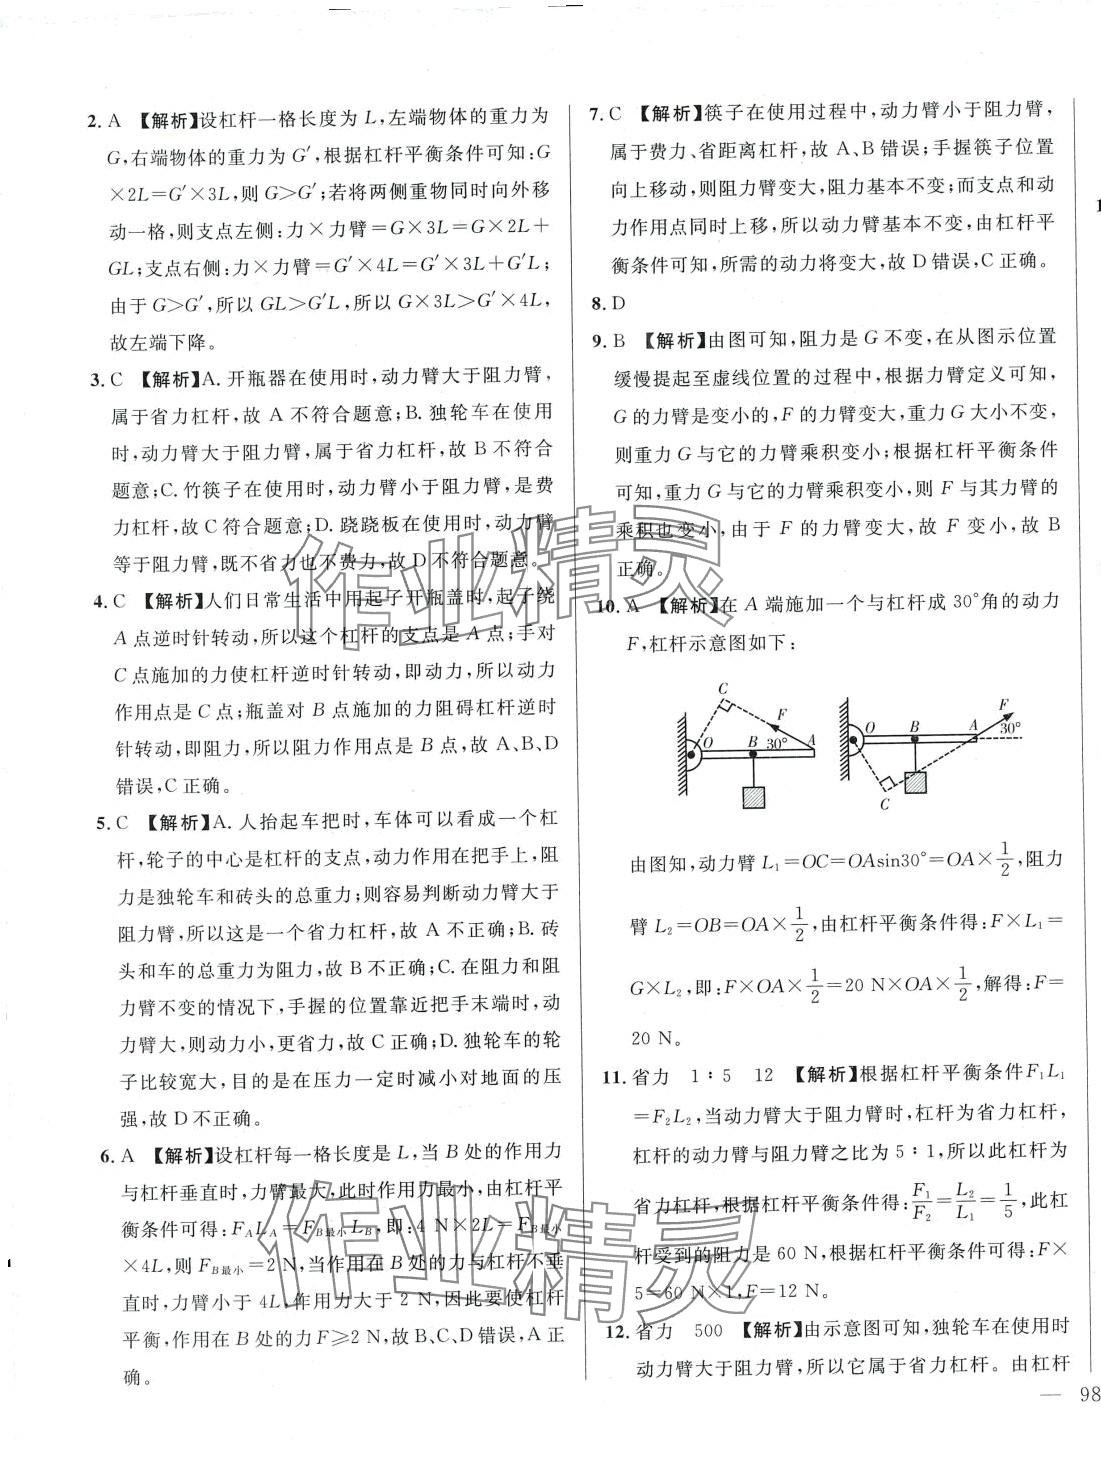 2. A 【解析】设杠杆一格长度为 L,左端物体的重力为
G,右端物体的重力为 G′,根据杠杆平衡条件可知:G
×2L=G′×3L,则 G>G′;若将两侧重物同时向外移
动一格,则支点左侧:力×力臂=G×3L=G×2L+
GL;支点右侧:力×力臂=G′×4L=G′×3L+G′L;
由于 G>G′,所以 GL>G′L,所以 G×3L>G′×4L,
故左端下降。
3. C 【解析】A. 开瓶器在使用时,动力臂大于阻力臂,
属于省力杠杆,故 A 不符合题意;B. 独轮车在使用
时,动力臂大于阻力臂,属于省力杠杆,故 B 不符合
题意;C. 竹筷子在使用时,动力臂小于阻力臂,是费
力杠杆,故 C 符合题意;D. 跷跷板在使用时,动力臂
等于阻力臂,既不省力也不费力,故 D 不符合题意。
4. C 【解析】人们日常生活中用起子开瓶盖时,起子绕
A 点逆时针转动,所以这个杠杆的支点是 A 点;手对
C 点施加的力使杠杆逆时针转动,即动力,所以动力
作用点是 C 点;瓶盖对 B 点施加的力阻碍杠杆逆时
针转动,即阻力,所以阻力作用点是 B 点,故 A、B、D
错误,C 正确。
5. C 【解析】A. 人抬起车把时,车体可以看成一个杠
杆,轮子的中心是杠杆的支点,动力作用在把手上,阻
力是独轮车和砖头的总重力;则容易判断动力臂大于
阻力臂,所以这是一个省力杠杆,故 A 不正确;B. 砖
头和车的总重力为阻力,故 B 不正确;C. 在阻力和阻
力臂不变的情况下,手握的位置靠近把手末端时,动
力臂大,则动力小,更省力,故 C 正确;D. 独轮车的轮
子比较宽大,目的是在压力一定时减小对地面的压
强,故 D 不正确。
6. A 【解析】设杠杆每一格长度是 L,当 B 处的作用力
与杠杆垂直时,力臂最大,此时作用力最小,由杠杆平
衡条件可得:F_A L_A=F_B最小 L_B,即:4 N×2L=F_B最小
×4L,则 F_B最小=2 N,当作用在 B 处的力与杠杆不垂
直时,力臂小于 4L,作用力大于 2 N,因此要使杠杆
平衡,作用在 B 处的力 F≥2 N,故 B、C、D 错误,A 正
确。
7. C 【解析】筷子在使用过程中,动力臂小于阻力臂,
属于费力、省距离杠杆,故 A、B 错误;手握筷子位置
向上移动,则阻力臂变大,阻力基本不变;而支点和动
力作用点同时上移,所以动力臂基本不变,由杠杆平
衡条件可知,所需的动力将变大,故 D 错误,C 正确。
8. D
9. B 【解析】由图可知,阻力是 G 不变,在从图示位置
缓慢提起至虚线位置的过程中,根据力臂定义可知,
G 的力臂是变小的,F 的力臂变大,重力 G 大小不变,
则重力 G 与它的力臂乘积变小;根据杠杆平衡条件
可知,重力 G 与它的力臂乘积变小,则 F 与其力臂的
乘积也变小,由于 F 的力臂变大,故 F 变小,故 B
正确。
10. A 【解析】在 A 端施加一个与杠杆成 30°角的动力
F,杠杆示意图如下:
C F O B 30° A
O B A F 30° C
由图知,动力臂 L₁=OC=OAsin30°=OA×1/2,阻力
臂 L₂=OB=OA×1/2,由杠杆平衡条件得:F×L₁=
G×L₂,即:F×OA×1/2=20 N×OA×1/2,解得:F=
20 N。
11. 省力 1∶5 12 【解析】根据杠杆平衡条件F₁L₁
=F₂L₂,当动力臂大于阻力臂时,杠杆为省力杠杆,
杠杆的动力臂与阻力臂之比为 5∶1,所以此杠杆为
省力杠杆,根据杠杆平衡条件得:F₁/F₂=L₂/L₁=1/5,此杠
杆受到的阻力是 60 N,根据杠杆平衡条件可得:F×
5=60 N×1,F=12 N。
12. 省力 500 【解析】由示意图可知,独轮车在使用时
动力臂大于阻力臂,所以它属于省力杠杆。由杠杆
— 98
作业精灵
作业精灵